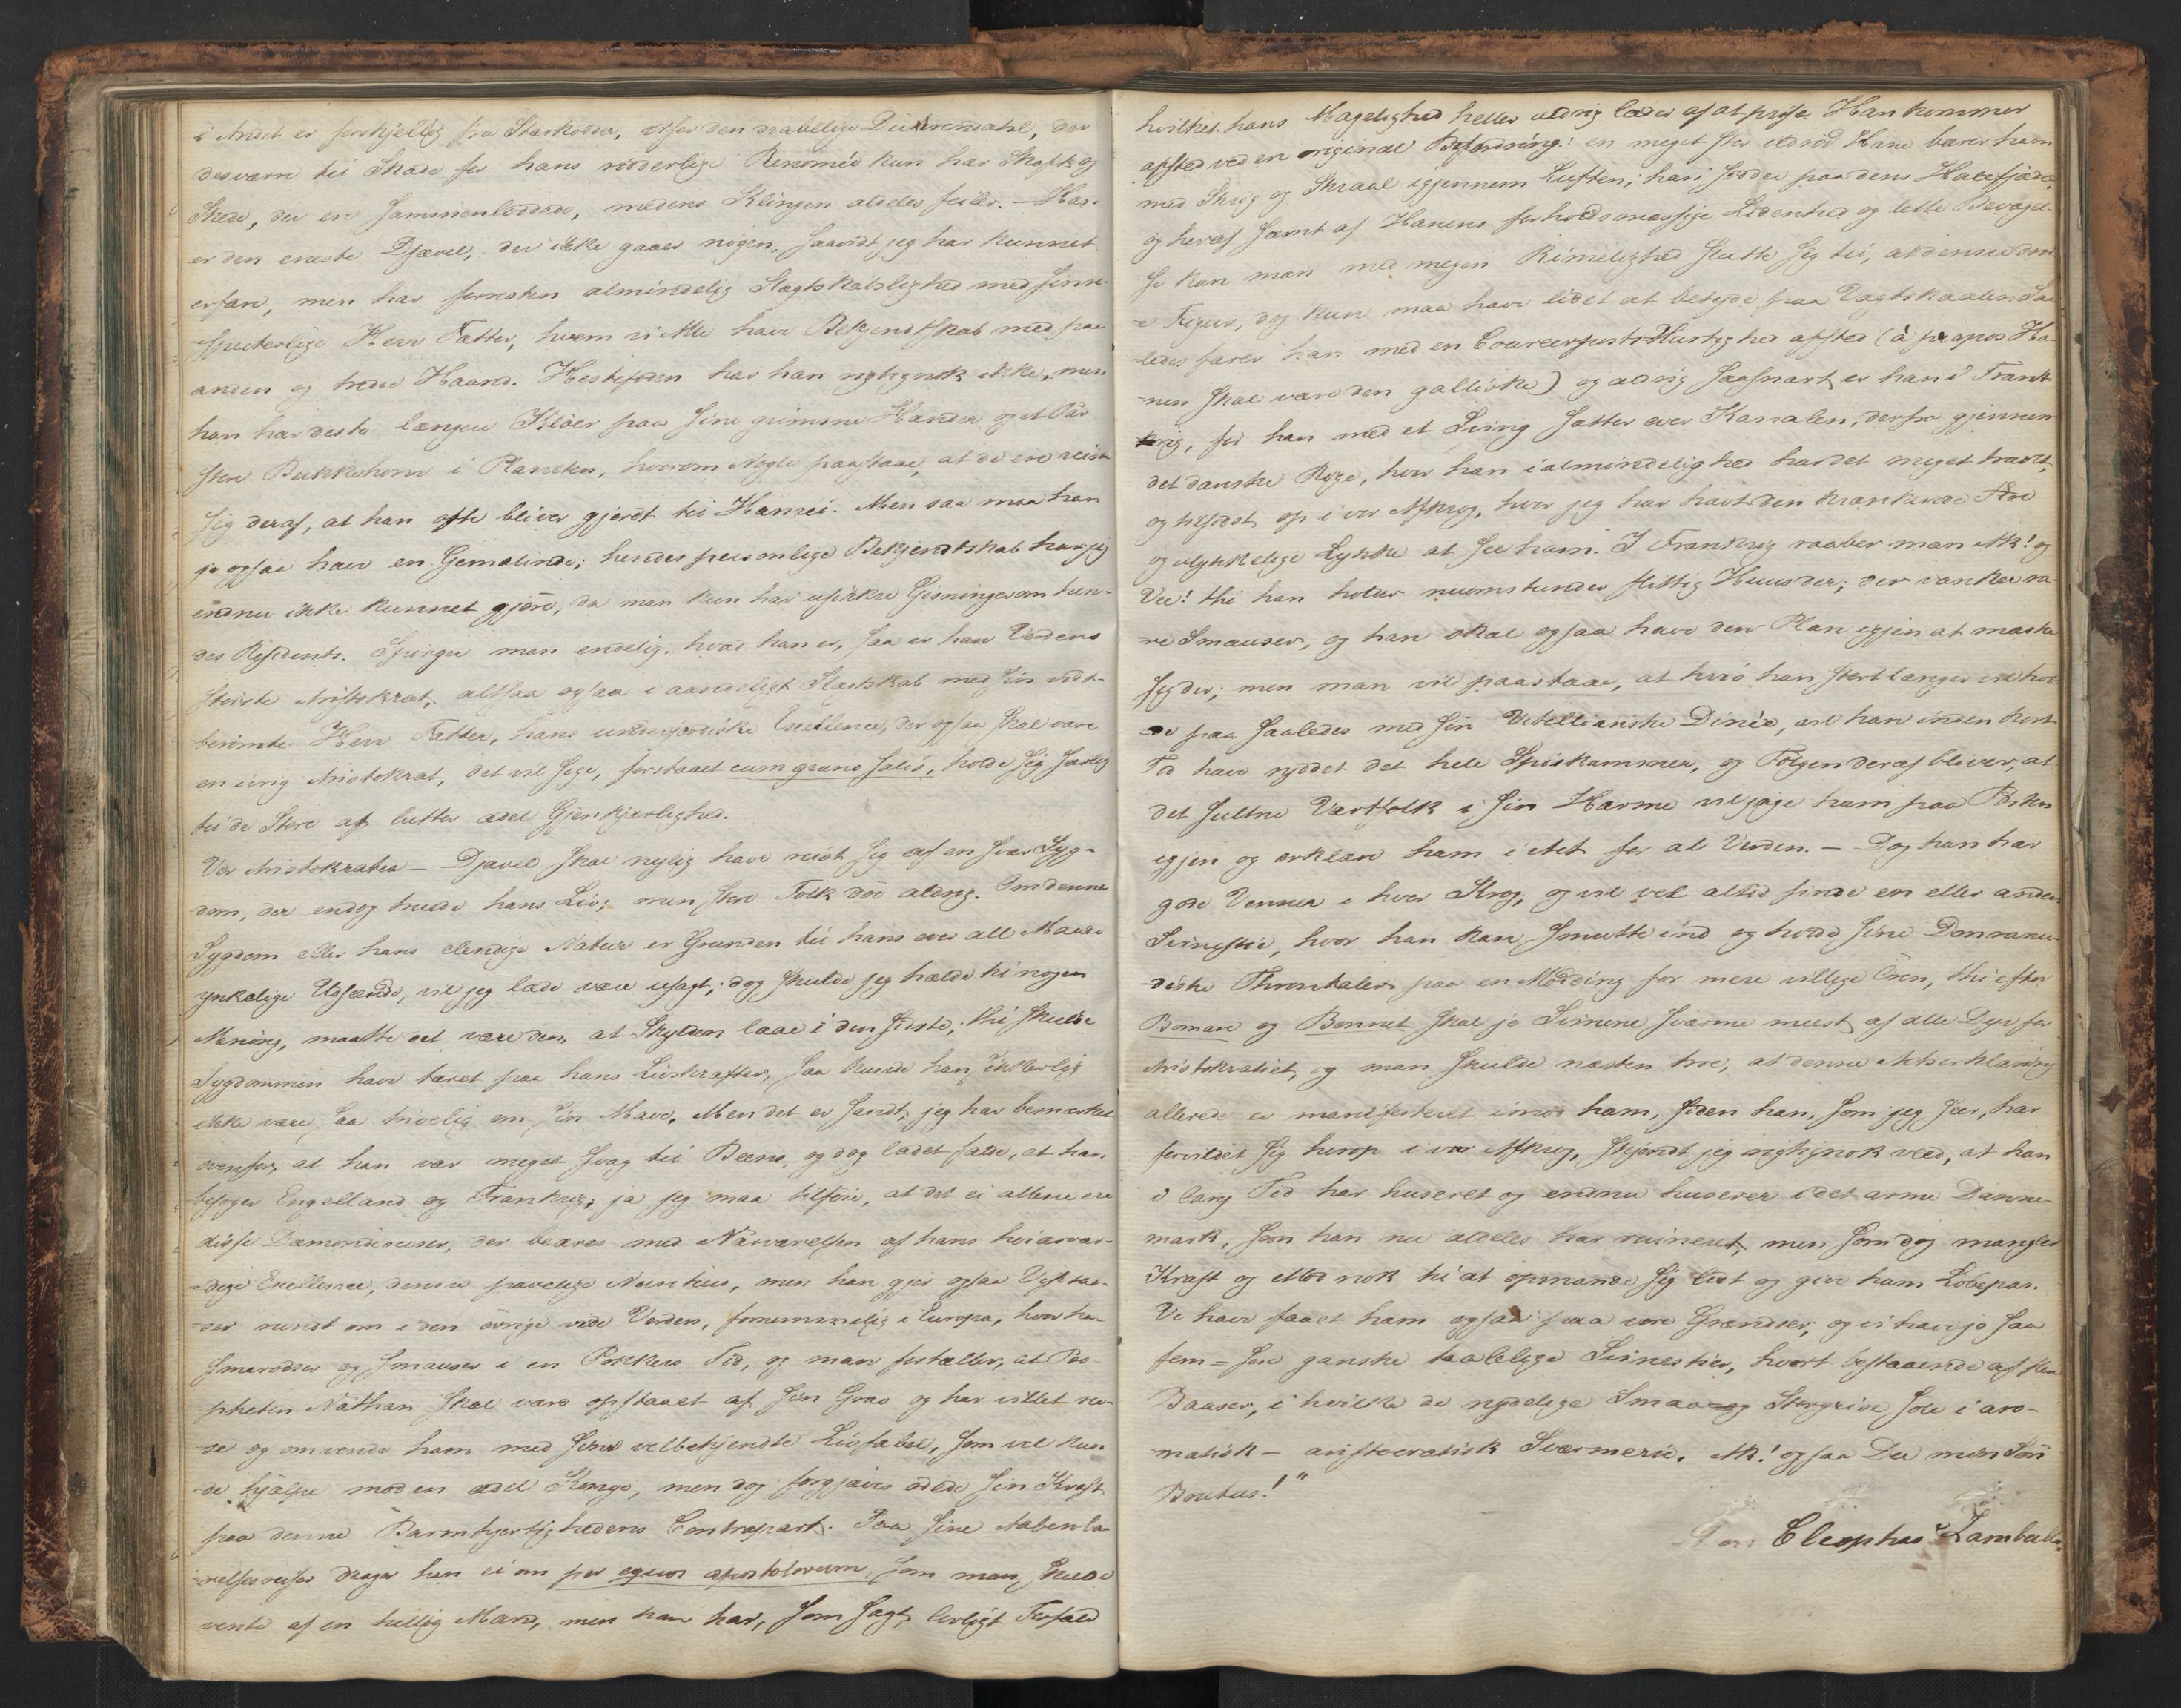 i Andet er forskjellig fra Starkodder, viser den navnlige Durendahl, der
desværre til Skade for hans ridderlige Renomée kun har Skaft og
Skede, der ere sammenloddede, medens Klingen aldeles feiler. — Han
er den eneste Djævel, der ikke gaaer nøgen, saavidt jeg har kunnet
erfare, men har foresten almindelig Slagtskabslighed med sin re-
spekterlige Herr Fætter, hvem vi Alle have Bekjendtskab med paa
anden og tredie Haand. Hestefoden har han rigtignok ikke, men
han har desto længere Kløer paa sine grimme Hænder og et Par
store Bukkehorn i Planeten, hvorom Nogle paastaae, at de ere reiste
sig deraf, at han ofte bliver gjordt til Hanrei. Men saa maa han
jo ogsaa have en Gemalinde; hendes personlige Bekjendtskab har jeg
endnu ikke kunnet gjøre, da man kun har usikkre Gisninger om hen-
des Residents. Spørger man endelig, hvad han er, saa er han Verdens
største Aristokrat, altsaa ogsaa i aandeligt Slægtskab med sin vidt-
berømte Herr Fætter, hans underjordiske Excellence, der ogsaa skal være
en ivrig Aristokrat, det vil sige, forstaaet cum grano salis, holde sig særlig
til de Store af lutter ædel Gjenkjærlighed.
Vor Aristokratia — Djævel skal nylig have reist sig af en svær Syg-
dom, der endog truede hans Liv; men store Folk döe aldrig. Om denne
Sygdom eller hans elendige Natur er Grunden til hans over all Maade
ynkelige Udseende, vil jeg lade være usagt; dog skulde jeg hælde til nogen
Mening, maatte det være den, at Skylden laae i den sidste; thi skulde
Sygdommen have tæret paa hans Livskræfter, saa kunde han sikkerlig
ikke være saa trivelig om sin Mave. Men det er sandt, jeg har bemærket
ovenfor, at han var meget svag til Beens, og dog ladet falde, at han
besøger Engelland og Frankrig; ja jeg maa tilføie, at det ei allene ere
disse Dæmoniner, der beæres med Nærværelsen af hans høiærvær-
dige Excellence, denne pavelige Nuntius, men han gjør ogsaa Visitat-
ser rundt om i den øvrige vide Verden, fornemmelig i Europa, hvor han
smarodser og smauser i en Pokkers Tid, og man fortæller, at Pro-
pheten Nathan skal være opstaaet af sin Grav og har villet re-
se og omvende ham med sine velbekjendte Livfabel, som vel kun-
de hjälpe mod en ædel Konge, men dog forgjæves ødede sin Kraft
paa denne Barmhjertighedens Contrapart. Paa sine Aabenba-
relsesreiser drager han ei om per equos apostolorum, som man skulde
vente af en hellig Mand, men han har, som sagt, livligt Forfald
hvilket hans Magelighed heller aldrig lader af at prise. Han kommer
afsted ved en original Befordring: en meget stor ildrød Hane bærer ham
med Skrig og Skraal igjennem Luften; han sidder paa dens Halefjædre,
og heraf samt af Hanens forholdsmæssige Lidenhed og lette Bevægel-
se kan man med megen Rimelighed slutte sig til, at denne don
e Figur, dog kun maa have lidet at betyde paa Vægtskaalen. Saa-
ledes farer han med en Courierposts-Hurtighed afsted (à propos Ha-
nen skal være den galliske) og aldrig saasnart er han i Frank-
rig, før han med et Sving sætter over Kanalen, derfra gjennem
det danske Rige, hvor han i almindelighed har det meget travlt,
og tilsidst op i vor Afkrog, hvor jeg har havt den krænkende Ære
og ulykkelige Lykke at see ham. I Frankrig raaber man Ak! og
Vee! thi han holder nuomstunder flittig Huus der; der vanker ra-
re Smauser, og han skal ogsaa have den Plan igjen at mæske
sig der; men man vil paastaae, at hvis han stort længer vil hol-
de paa saaledes med sin Vitellianske Dinér, vil han inden kort
Tid have ryddet det hele Spiskammer, og Følgen deraf bliver, at
det sultne Værtsfolk i sin Harme vil jage ham paa Porten
igjen og erklære ham i Act for al Verden. — Dog han har
gode Venner i hver Krog, og vil vel altid finde en eller anden
Svinestie, hvor han kan smutte ind og holde sine Donnanu-
diske Throntaler paa en Mødding for mere villige Øren, thi efter
Bomare og Bonnet skal jo Svinene sværme meest af alle Dyr for
Aristokratiet, og man skulde næsten troe, at denne Actserklæring
allerede er manifesteret imod ham, siden han, som jeg seer, har
forvildet sig herop i vor Afkrog, skjøndt jeg rigtignok veed, at han
i lang Tid har huseret og endnu huserer i det arme Danne-
mark, som han nu aldeles har ruineret, men som dog mangler
Kraft og Mod nok til at opmande sig lidt og give ham Løbepas.
Vi have faaet ham ogsaa paa vore Grændser, og vi have jo saa
fem = sex ganske taalelige Svinestier, hvert bestaaende af flere
Baaser, i hvilke de nydelige Smaa og Storgrise sole i aro-
matisk — aristocratisk Sværmerie. Ak! ogsaa Du min Søn
Brutus!"
Cleophas Zambullo.